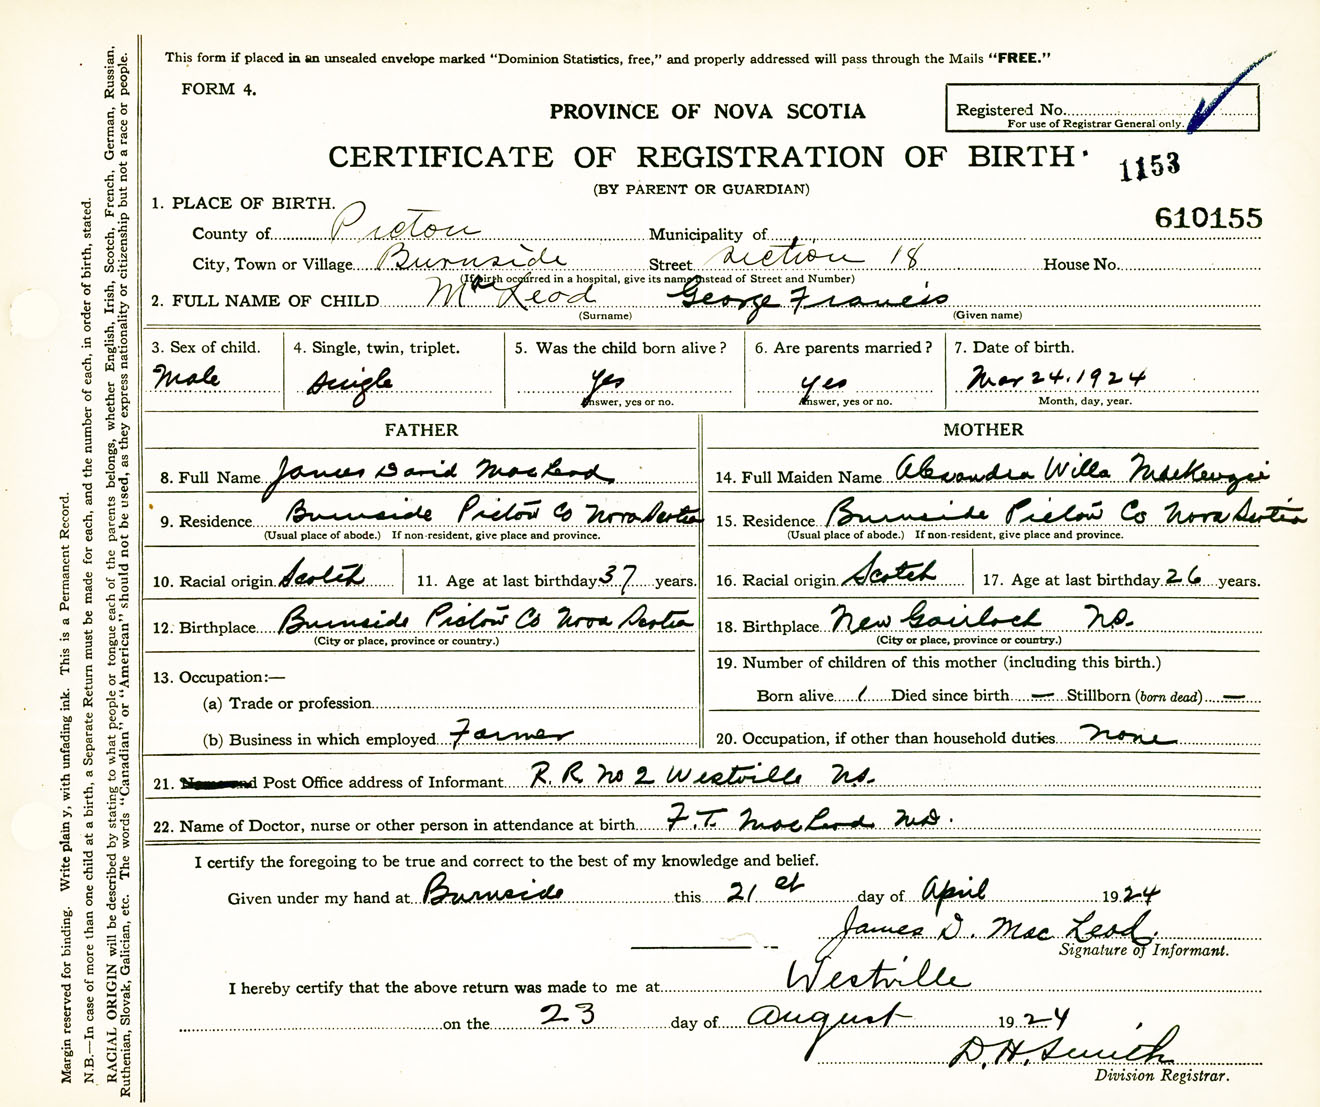 This form if placed in an unsealed envelope marked "Dominion Statistics, free," and properly addressed will pass through the Mails "FREE."
FORM 4.
PROVINCE OF NOVA SCOTIA
Registered No.
For use of Registrar General only.
CERTIFICATE OF REGISTRATION OF BIRTH
1153
(BY PARENT OR GUARDIAN)
610155
1. PLACE OF BIRTH.
County of Pictou Municipality of
City, Town or Village Burnside Street Section 18 House No.
(If birth occurred in a hospital, give its name instead of Street and Number)
2. FULL NAME OF CHILD McLeod George Francis
(Surname) (Given name)
3. Sex of child. 4. Single, twin, triplet. 5. Was the child born alive? 6. Are parents married? 7. Date of birth.
Male Single Yes Yes Mar 24. 1924
Answer, yes or no. Answer, yes or no. Month, day, year.
FATHER MOTHER
8. Full Name James David MacLeod 14. Full Maiden Name Alexandra Willa MacKenzie
9. Residence Burnside Pictou Co Nova Scotia 15. Residence Burnside Pictou Co Nova Scotia
(Usual place of abode.) If non-resident, give place and province. (Usual place of abode.) If non-resident, give place and province.
10. Racial origin Scotch 11. Age at last birthday 37 years. 16. Racial origin Scotch 17. Age at last birthday 26 years.
12. Birthplace Burnside Pictou Co Nova Scotia 18. Birthplace New Gairloch N.S.
(City or place, province or country.) (City or place, province or country.)
13. Occupation:— 19. Number of children of this mother (including this birth.)
(a) Trade or profession Born alive 1 Died since birth — Stillborn (born dead) —
(b) Business in which employed Farmer 20. Occupation, if other than household duties none
21. Post Office address of Informant R. R. No 2 Westville N.S.
22. Name of Doctor, nurse or other person in attendance at birth F. T. MacLeod M.D.
I certify the foregoing to be true and correct to the best of my knowledge and belief.
Given under my hand at Burnside this 21st day of April 1924
James D. MacLeod.
Signature of Informant.
I hereby certify that the above return was made to me at Westville
on the 23 day of August 1924
D. H. Smith
Division Registrar.
Margin reserved for binding. Write plain y, with unfading ink. This is a Permanent Record.
N.B.—In case of more than one child at a birth, a Separate Return must be made for each, and the number of each, in order of birth, stated.
RACIAL ORIGIN will be described by stating to what people or tongue each of the parents belongs, whether English, Irish, Scotch, French, German, Russian,
Ruthenian, Slovak, Galician, etc. The words "Canadian" or "American" should not be used, as they express nationality or citizenship but not a race or people.